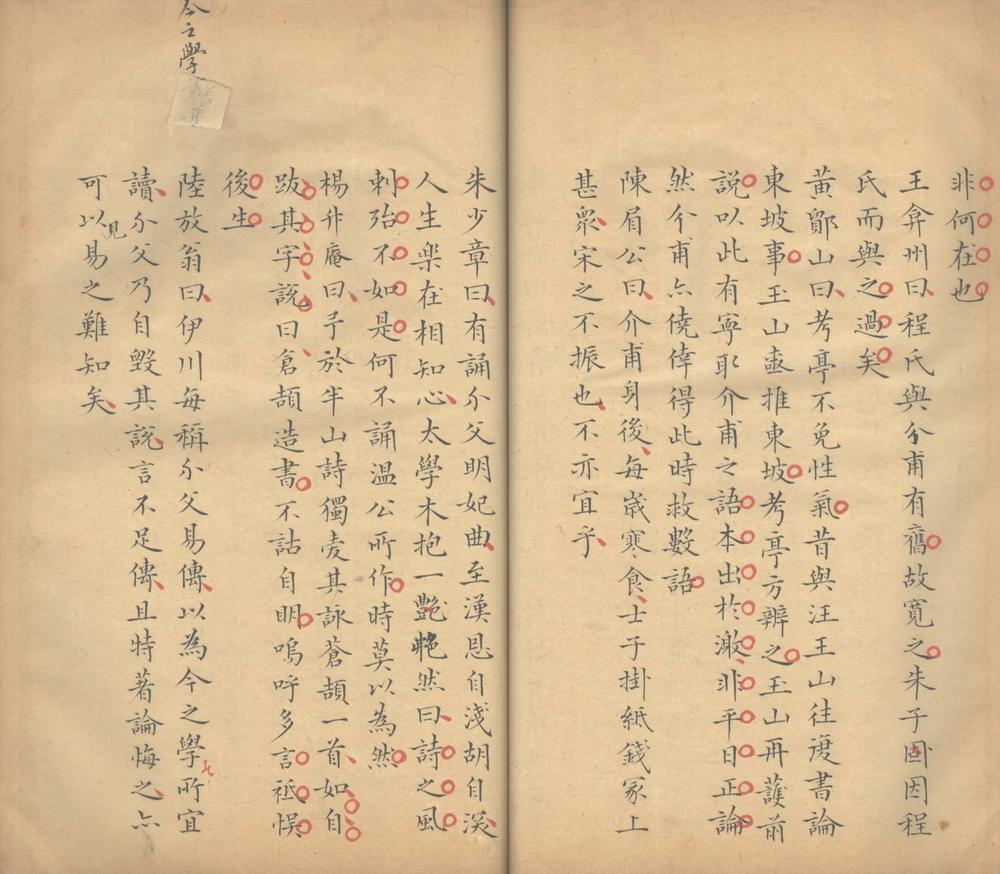 非何在也
王弇州曰程氏與介甫有舊故寬之朱子固因程
氏而與之過矣
黃鄮山曰考亭不免性氣昔與汪玉山往復書論
東坡事玉山亟推東坡考亭方辨之玉山再護前
說以此有寧取介甫之語本出於激非平日正論
然介甫亦僥倖得此時救數語
陳眉公曰介甫身後每歲寒食士子掛紙錢冢上
甚衆宋之不振也不亦宜乎
朱少章曰有誦介父明妃曲至漢恩自淺胡自深
人生樂在相知心太學木抱一艷艴然曰詩之風
刺殆不如是何不誦温公所作時莫以為然
楊升庵曰予於半山詩獨愛其詠蒼頡一首如自
跋其字說曰倉頡造書不詁自明嗚呼多言祗悞
後生
陸放翁曰伊川每稱介父易傳以為今之學所宜
讀介父乃自毀其說言不足傳且特著論悔之亦
可以見易之難知矣
今之學